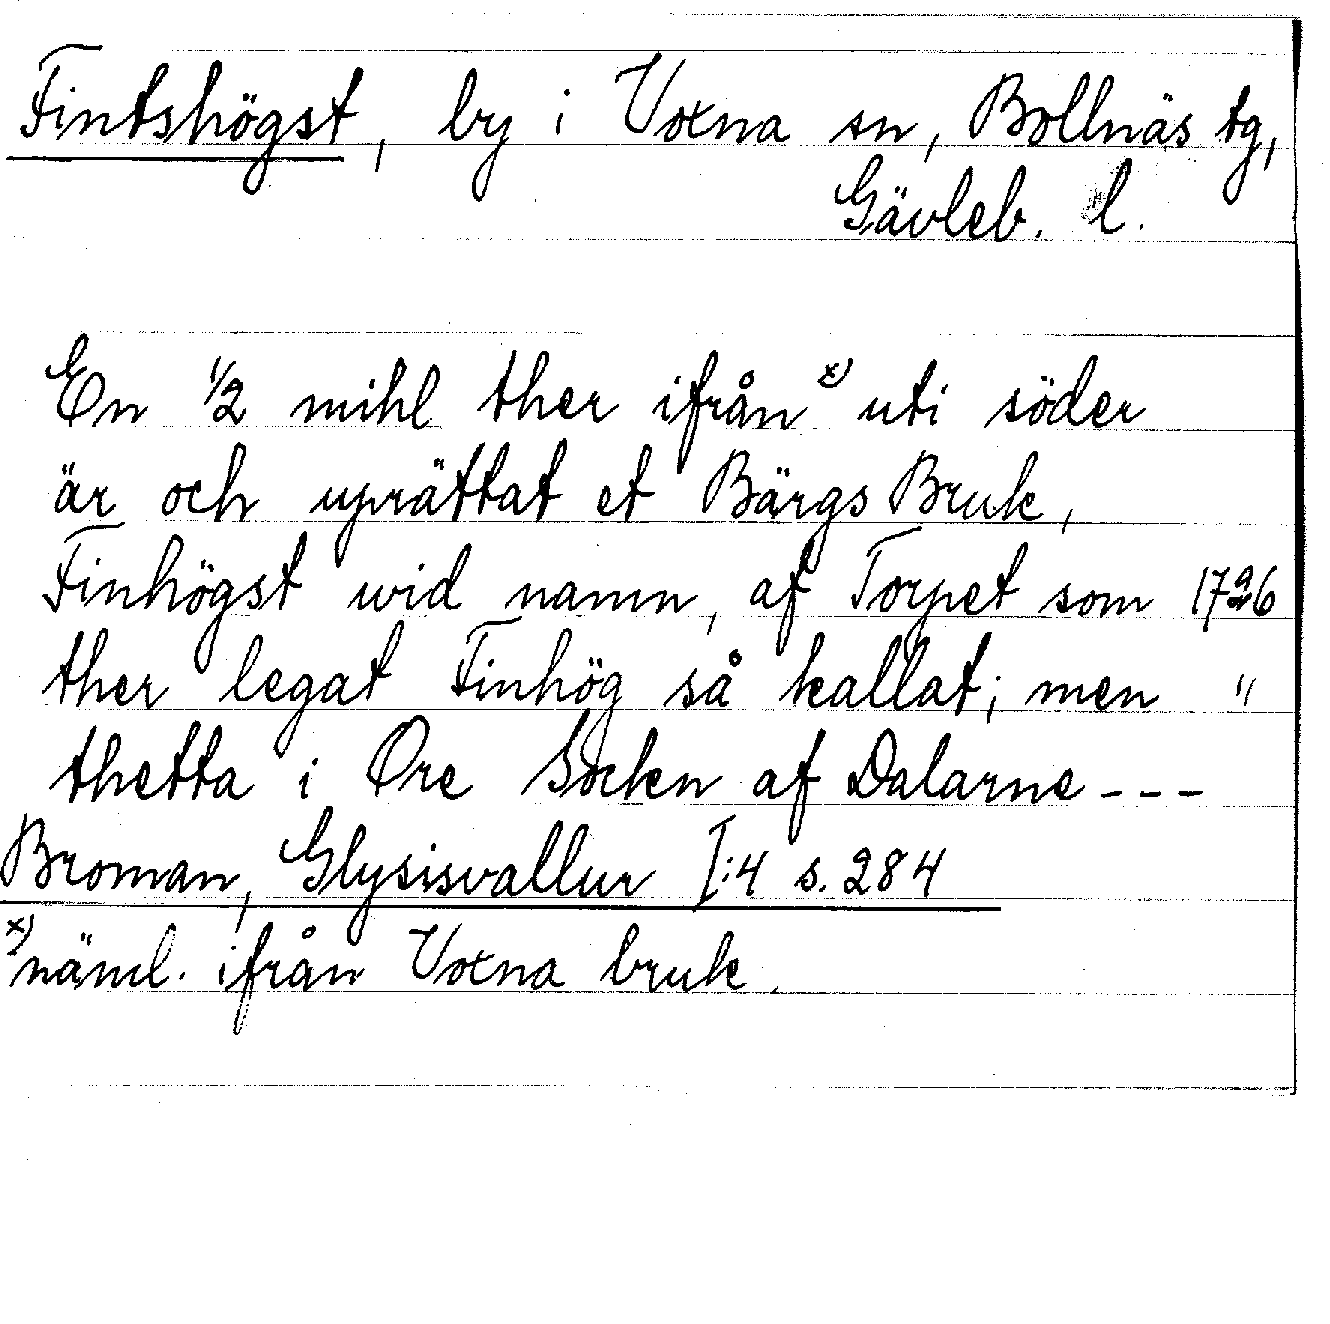 Fintshögst, by i Voxna sn, Bollnäs tg,
Gävleb. l.
En 1/2 mihl ther ifrån x) uti söder
är och uprättat et Bärgs Bruk,
Finhögst wid namn, af Torpet som 1726
ther legat Finhög så kallat; men "
thetta i Ore Socken af Dalarne ---
Broman, Glysisvallur I:4 s. 284
x) näml. ifrån Voxna bruk.